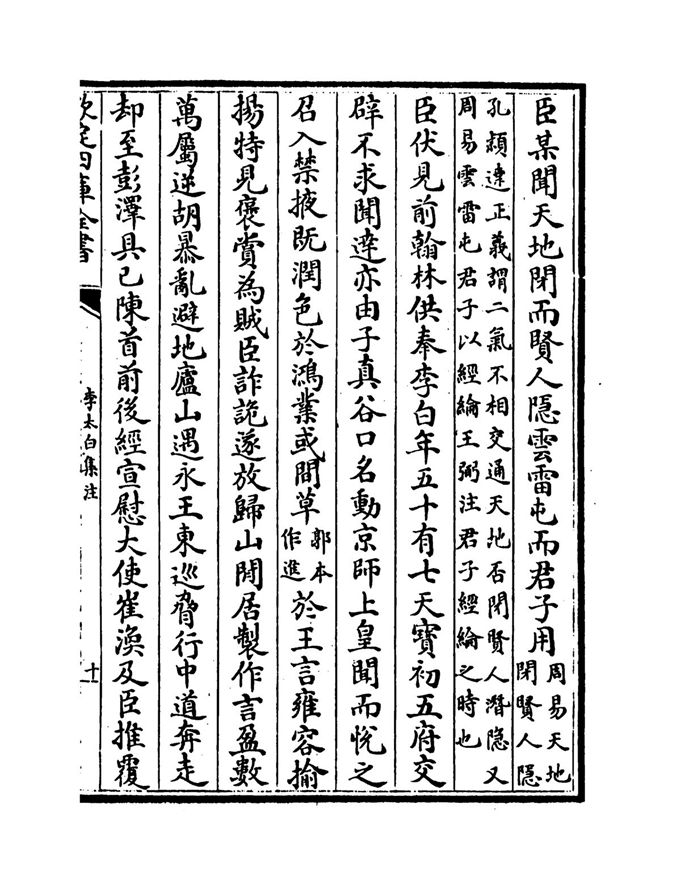 臣某聞天地閉而賢人隱雲雷屯而君子用周易天地閉賢人隱
孔穎達正義謂二氣不相交通天地否閉賢人潛隱又
周易雲雷屯君子以經綸王弼注君子經綸之時也
臣伏見前翰林供奉李白年五十有七天寶初五府交
辟不求聞達亦由子真谷口名動京師上皇聞而悅之
召入禁掖既潤色於鴻業或間草郭本作進於王言雍容揄
揚特見褒賞為賊臣詐詭遂放歸山閒居製作言盈數
萬屬逆胡暴亂避地廬山遇永王東巡脅行中道奔走
却至彭澤具已陳首前後經宣慰大使崔渙及臣推覆
欽定四庫全書
李太白集注
十